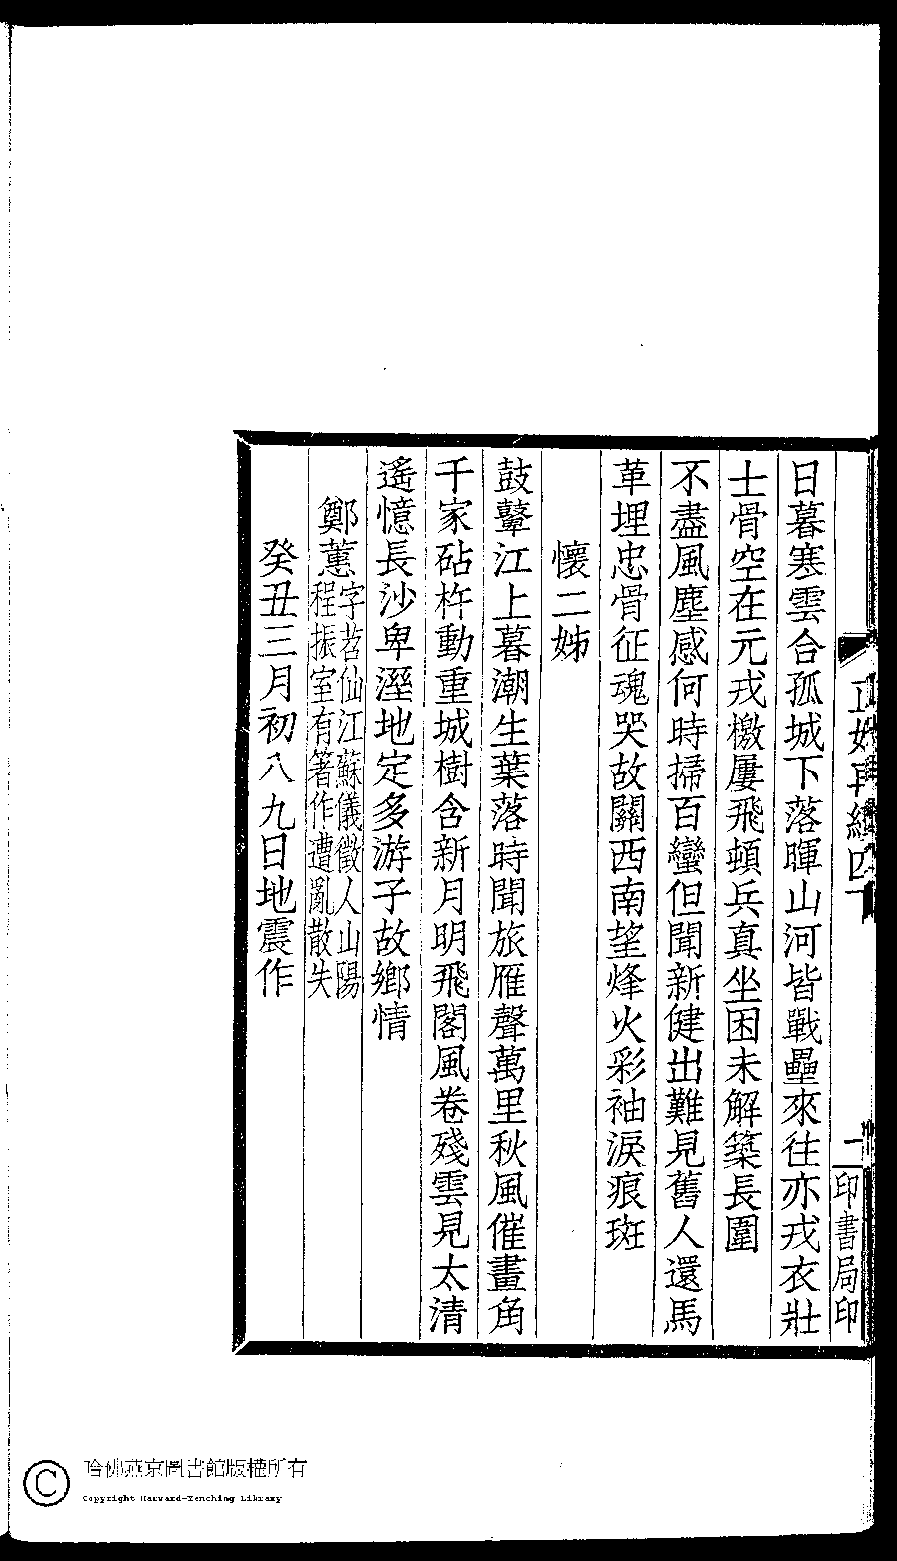 日暮寒雲合孤城下落暉山河皆戰壘來往亦戎衣壯
士骨空在元戎檄屢飛頓兵真坐困未解築長圍
不盡風塵感何時掃百蠻但聞新健出難見舊人還馬
革埋忠骨征魂哭故關西南望烽火彩袖淚痕斑
懷二姊
鼓鼙江上暮潮生葉落時聞旅雁聲萬里秋風催畫角
千家砧杵動重城樹含新月明飛閣風卷殘雲見太清
遙憶長沙卑溼地定多游子故鄉情
鄭蕙字苕仙江蘇儀徵人山陽
程振室有箸作遭亂散失
癸丑三月初八九日地震作
一
印書局印
哈佛燕京圖書館版權所有
Copyright Harvard-Yenching Library